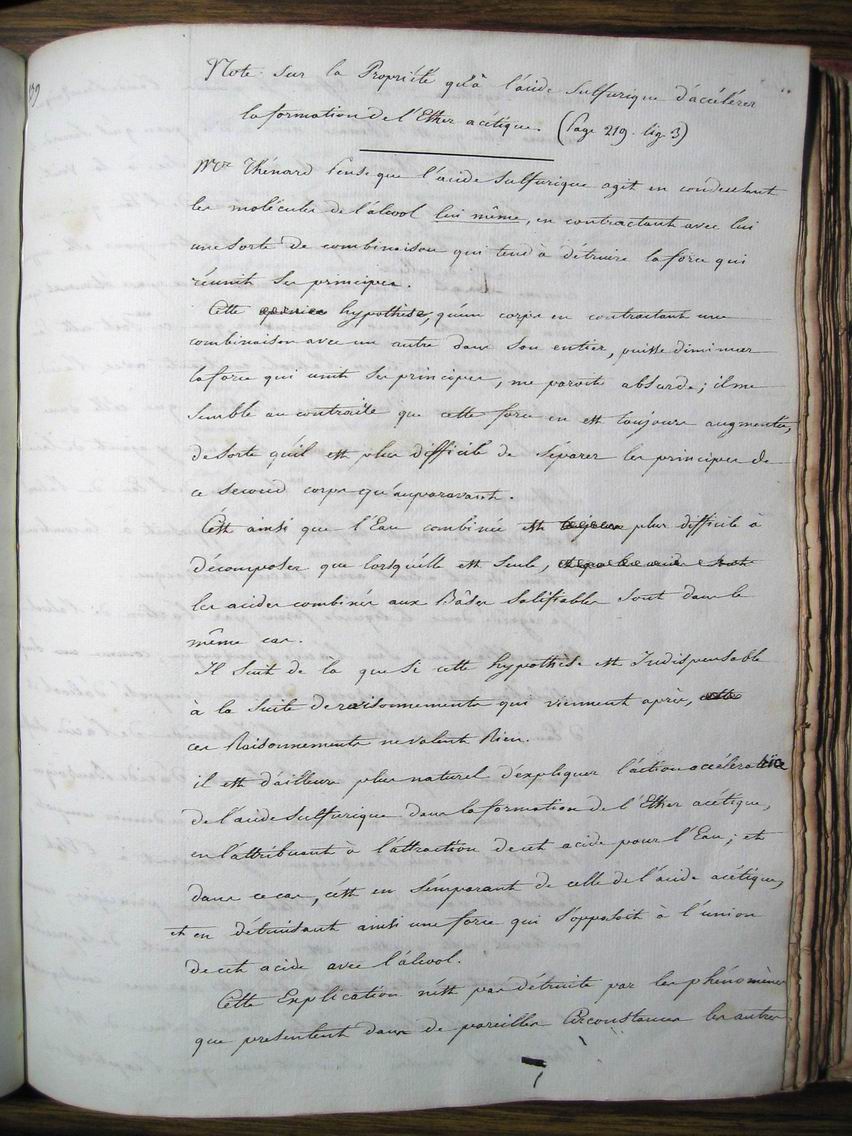 Note sur la Propriété qu'à l'acide Sulfurique d'accélérer
la formation de l'Ether acétique. (Page 219. lig. 3)
Mr. Thénard Pense que l'acide Sulfurique agit en condensant
les molécules de l'alcool lui même, en contractant avec lui
une sorte de combinaison qui tend à détruire la force qui
réunit ses principes.
Cette hypothèse, qu'un corps en contractant une
combinaison avec un autre dans son entier, puisse diminuer
la force qui unit ses principes, me paroit absurde; il me
semble au contraire que cette force en est toujours augmentée,
de sorte qu'il est plus difficile de séparer les principes de
ce second corps qu'auparavant.
C'est ainsi que l'Eau combinée est toujours plus difficile à
décomposer que lorsqu'elle est seule,
les acides combinés aux Bâses Salifiables sont dans le
même cas.
Il suit de la que si cette hypothèse est Indispensable
à la suite de raisonnements qui viennent après, cette
ces Raisonnements ne valent Rien.
il est d'ailleurs plus naturel d'expliquer l'action accélératrice
de l'acide Sulfurique dans la formation de l'Ether acétique,
en l'attribuant à l'attraction de cet acide pour l'Eau; et
dans ce cas, c'est en s'emparant de celle de l'acide acétique,
et en détruisant ainsi une force qui s'opposoit à l'union
de cet acide avec l'alcool.
Cette Explication n'est pas détruite par les phénomènes
que présentent dans de pareilles Circonstances les autres